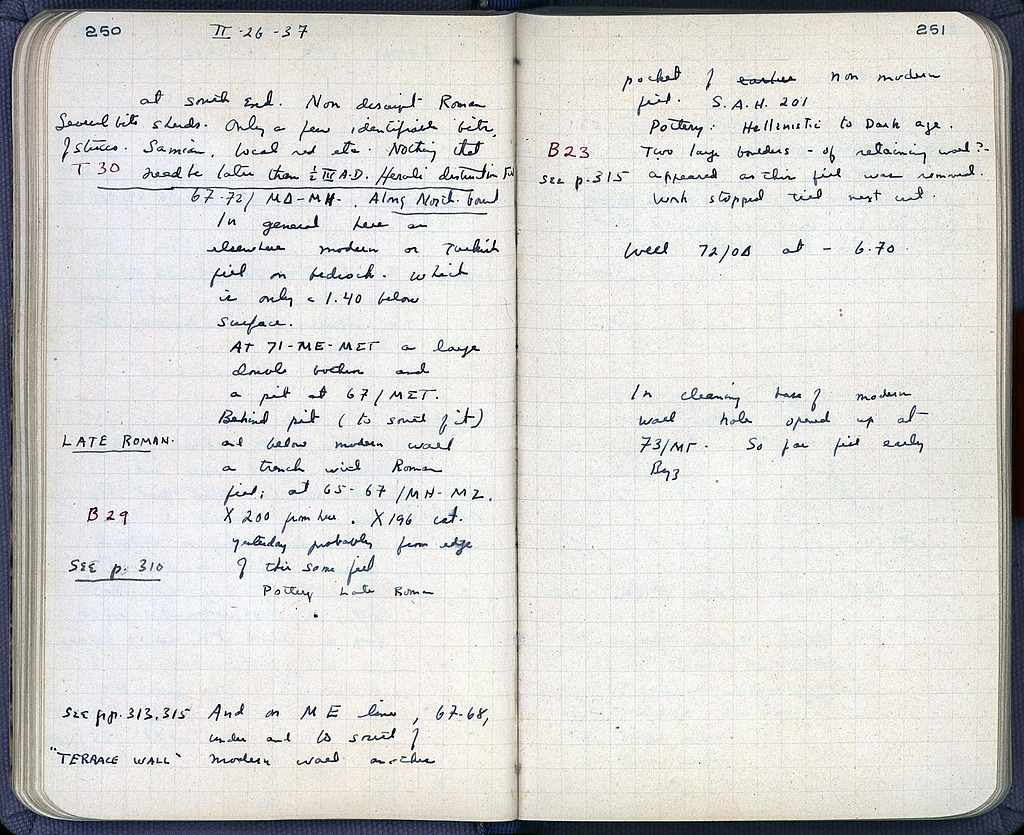 250
II-26-37
at south End. Non descript Roman
Several bits sherds. Only a few identifiable bits,
of stucco. Samian, local red etc. Nothing that
T 30
need be later than ½ III A.D. Heruli destruction
67-72/ MΔ-MH-. Along North bound
In general here as
elsewhere modern or Turkish
fill on bedrock. which
is only c 1.40 below
surface.
At 71-ME-MΣT a large
double bothros and
a pit at 67/MΣT.
Behind pit (to south of it)
LATE ROMAN.
and below modern wall
a trench with Roman
fill; at 65-67/MH-MZ.
B 29
X 200 from here. X 196 cat.
yesterday probably from edge
SEE p. 310
of this same fill
Pottery Late Roman
SEE pp. 313, 315
And on ME line, 67-68,
under and to south of
"TERRACE WALL"
modern wall another
251
pocket of earlier non modern
fill. S.A.H. 201
Pottery: Hellenistic to Dark age.
B23
Two large boulders - of retaining wall?-
SEE p. 315
appeared as this fill was removed.
Work stopped till next cut.
Well 72/ΟΔ at - 6.70
In cleaning base of modern
wall hole opened up at
73/MΓ. So far fill early
Byz